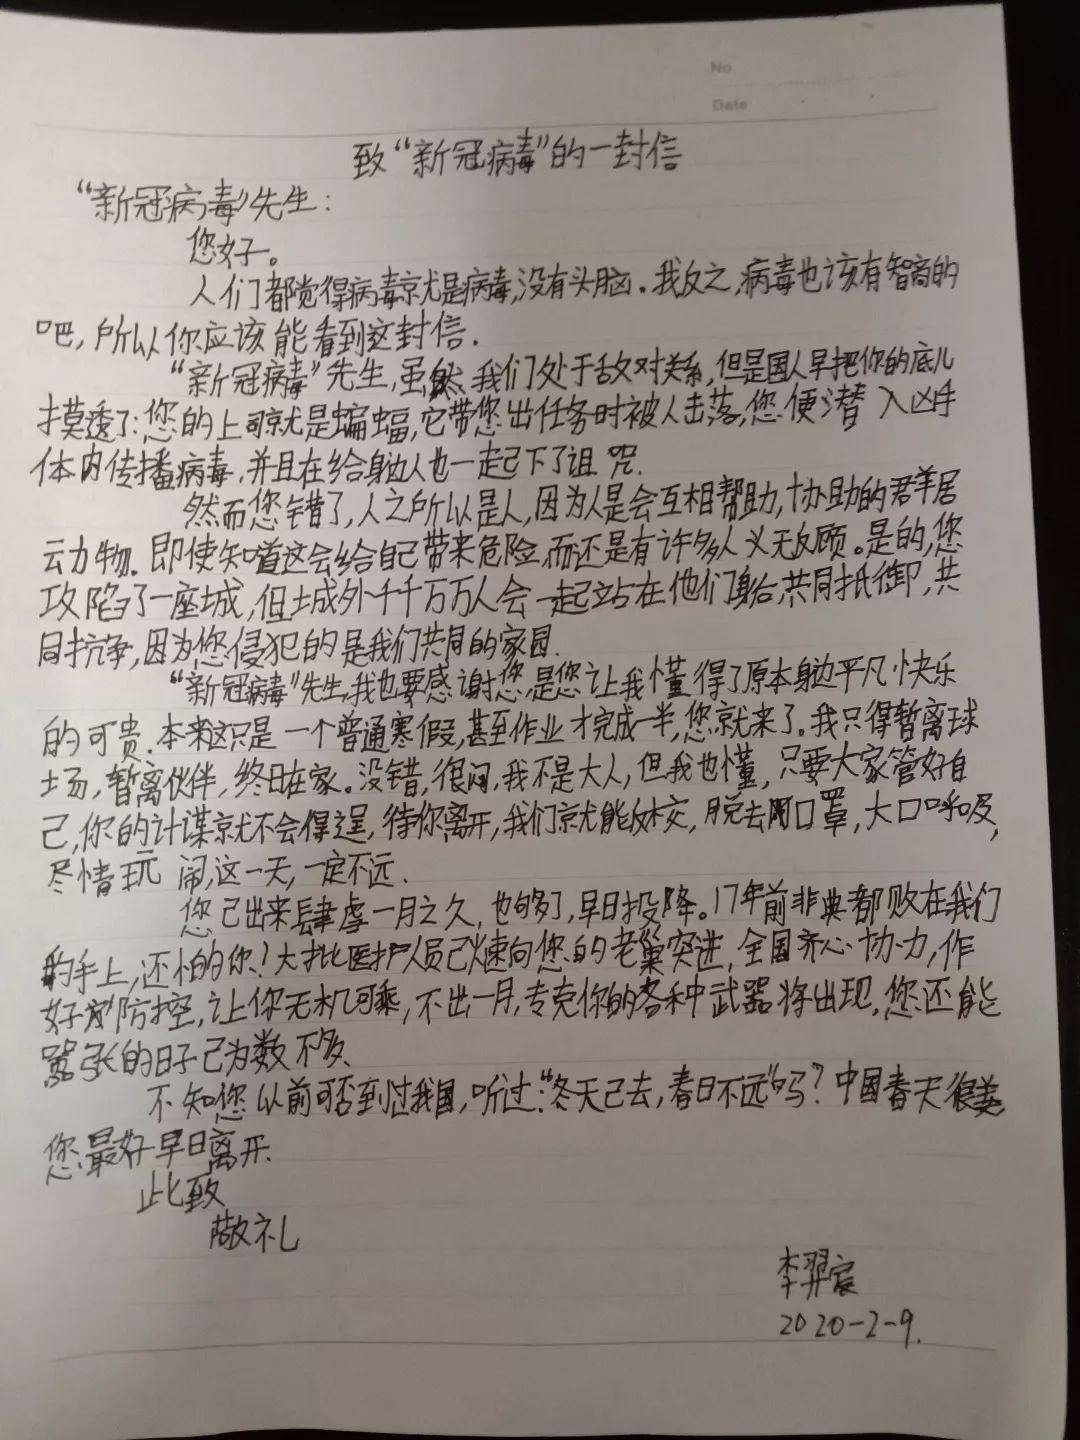 No
Date
致“新冠病毒”的一封信
“新冠病毒”先生：
您好。
人们都觉得病毒就是病毒,没有头脑.我反之,病毒也该有智商的
吧,所以你应该能看到这封信.
“新冠病毒”先生,虽然我们处于敌对关系,但是国人早把你的底儿
摸透了:您的上司就是蝙蝠,它带您出任务时被人击落,您便潜入凶手
体内传播病毒,并且在给身边人也一起下了诅咒.
然而您错了,人之所以是人,因为人是会互相帮助,协助的群居
动物.即使知道这会给自己带来危险,而还是有许多人义无反顾。是的,您
攻陷了一座城,但城外千千万万人会一起站在他们身后,共同抵御,共
同抗争,因为您侵犯的是我们共同的家园.
“新冠病毒”先生,我也要感谢您,是您让我懂得了原本身边平凡快乐
的可贵.本来这只是一个普通寒假,甚至作业才完成一半,您就来了。我只得暂离球
场,暂离伙伴,终日在家。没错,很闷,我不是大人,但我也懂,只要大家管好自
己,你的计谋就不会得逞,待你离开,我们就能返校,脱去口罩,大口呼吸,
尽情玩闹,这一天,一定不远.
您已出来肆虐一月之久,也够了,早日投降。17年前非典都败在我们
的手上,还怕的你!大批医护人员已火速向您的老巢突进,全国齐心协力,作
好防控,让你无机可乘,不出一月,专克你的各种武器将出现,您还能
嚣张的日子已为数不多.
不知您以前可否到过我国,听过:“冬天已去,春日不远”吗?中国春天很美,
您最好早日离开.
此致
敬礼
李羿宸
2020-2-9.